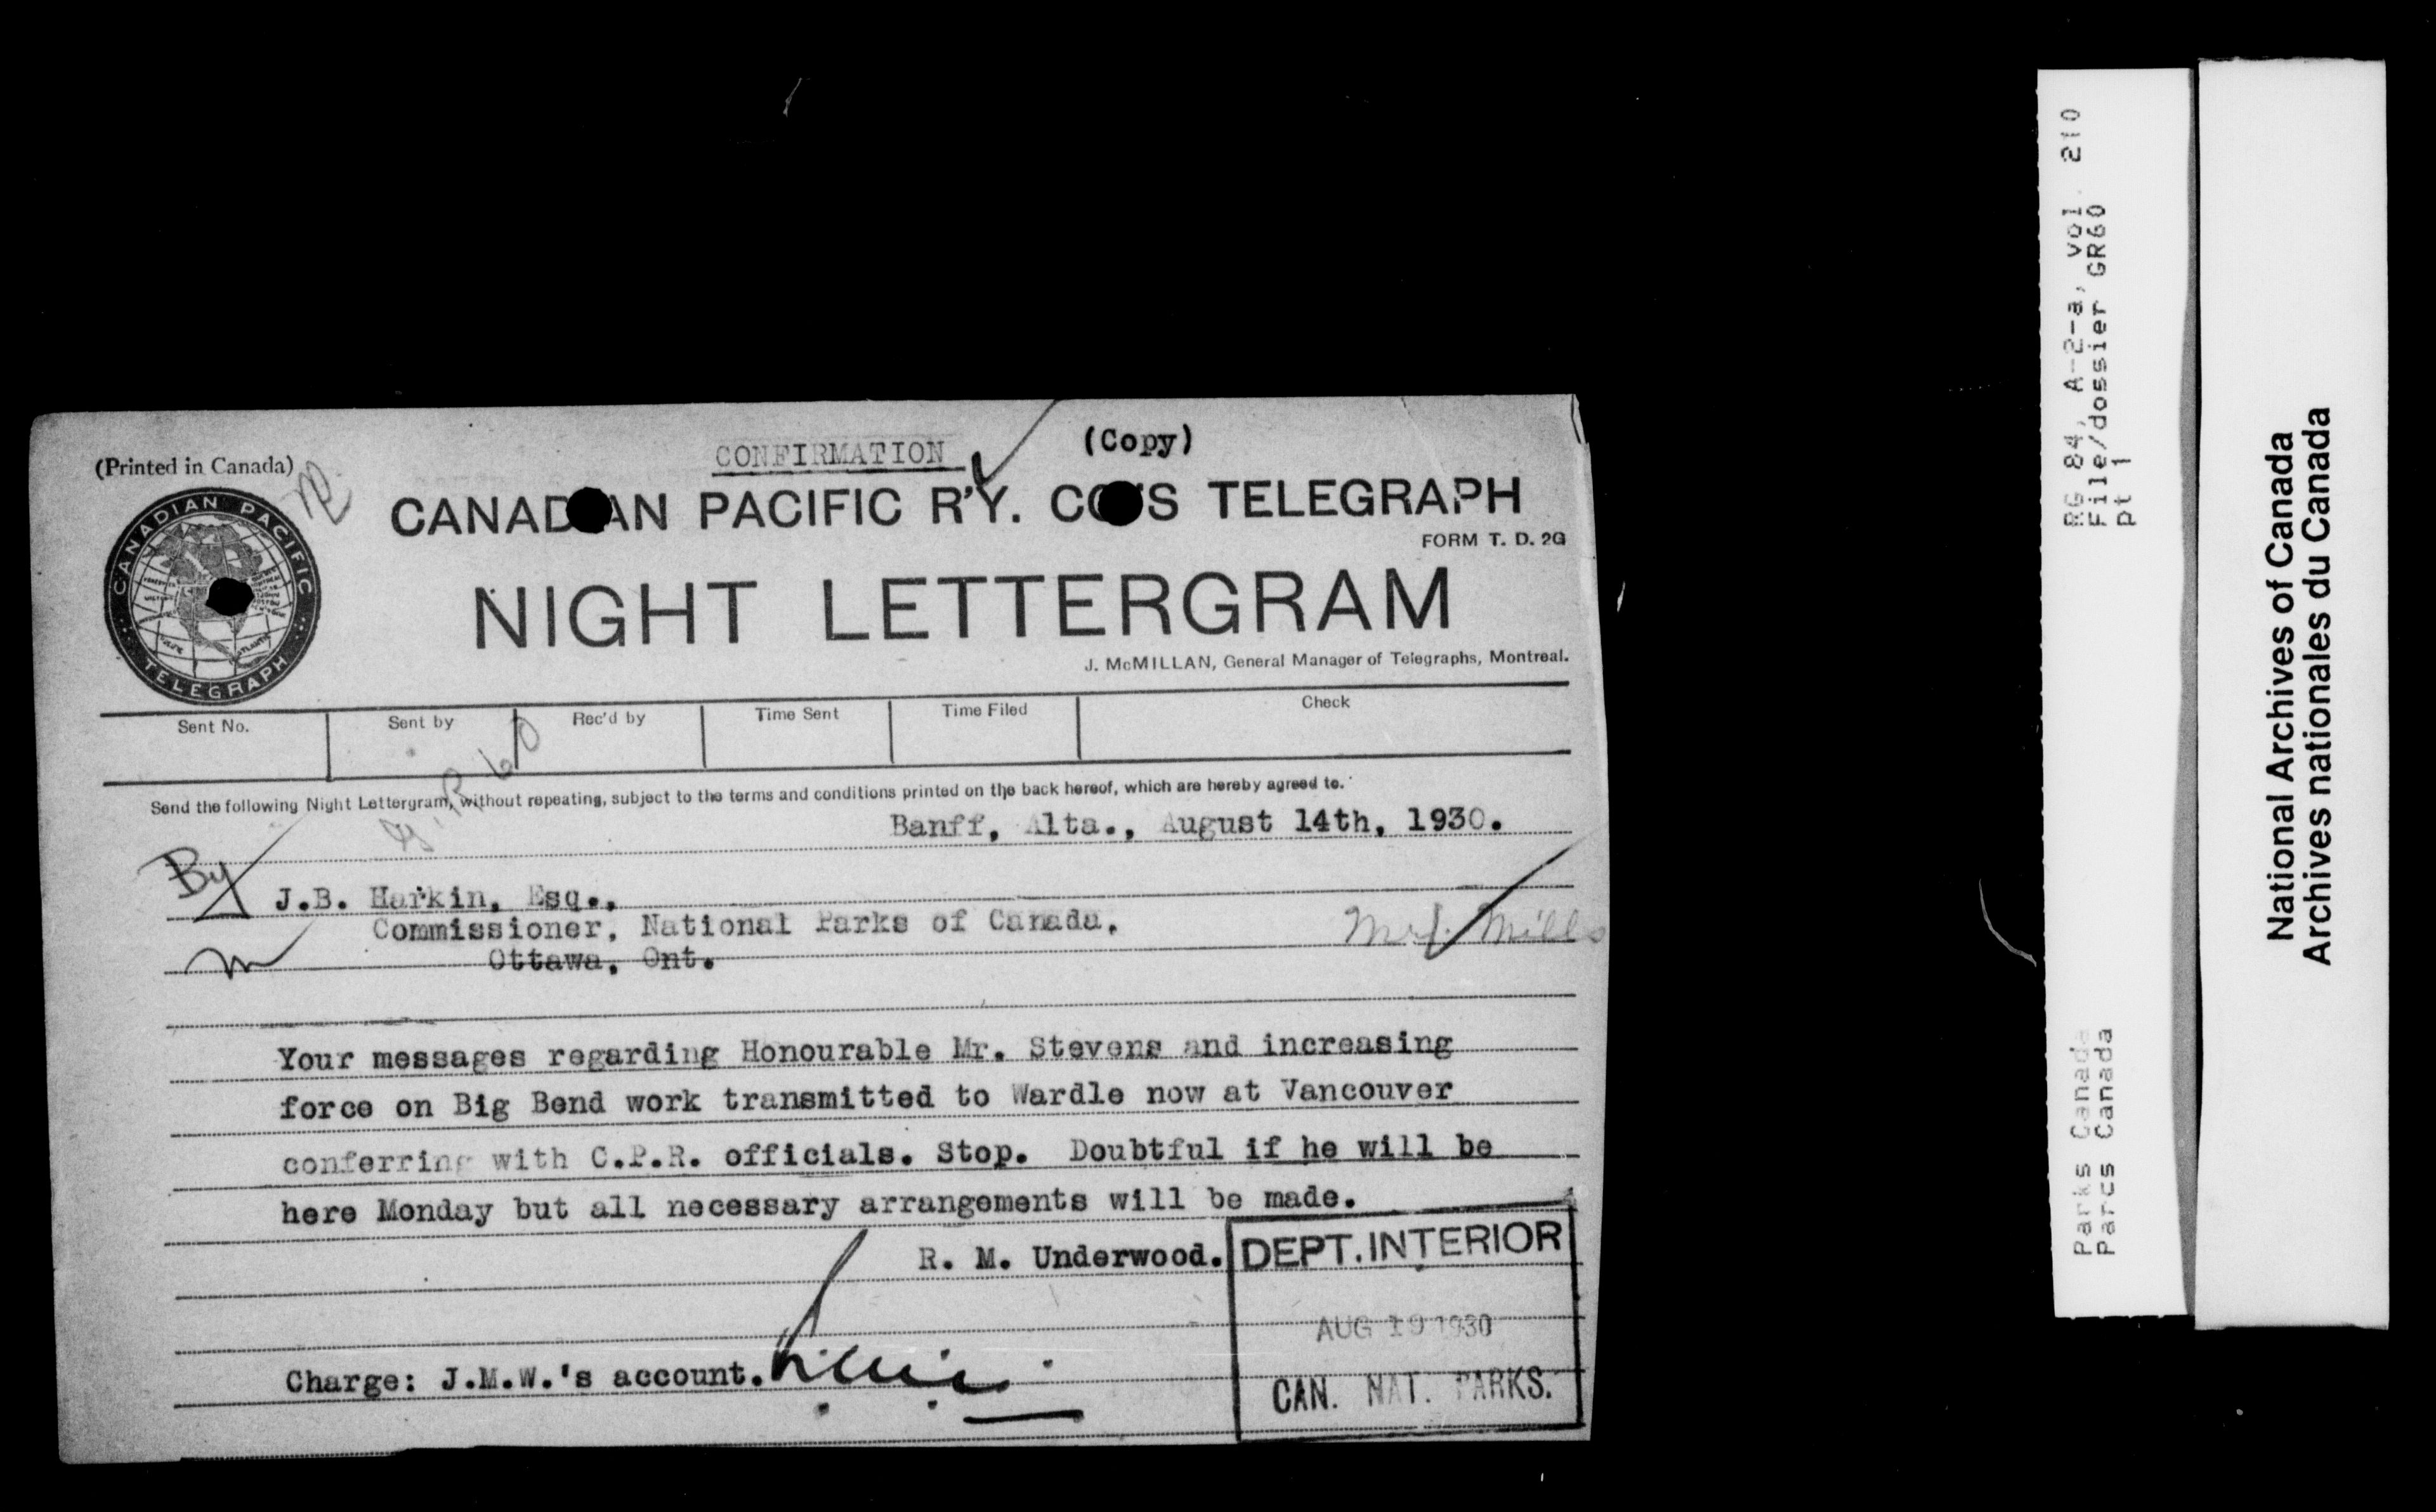 CONFIRMATION
(Copy)
(Printed in Canada)
CANADIAN PACIFIC R'Y. CO'S TELEGRAPH
FORM T. D. 2G
CANADIAN PACIFIC
TELEGRAPH
NIGHT LETTERGRAM
J. McMILLAN, General Manager of Telegraphs, Montreal.
Sent No. Sent by Rec'd by Time Sent Time Filed Check
G.R 60
Send the following Night Lettergram, without repeating, subject to the terms and conditions printed on the back hereof, which are hereby agreed to.
Banff, Alta., August 14th, 1930.
By
J.B. Harkin, Esq.,
Commissioner, National Parks of Canada,
Mills
Ottawa, Ont.
Your messages regarding Honourable Mr. Stevens and increasing
force on Big Bend work transmitted to Wardle now at Vancouver
conferring with C.P.R. officials. Stop. Doubtful if he will be
here Monday but all necessary arrangements will be made.
R. M. Underwood.
DEPT. INTERIOR
AUG 19 1930
CAN. NAT. PARKS.
Charge: J.M.W.'s account.
RG 84, A-2-a, vol. 210
File/dossier GR60
pt 1
Parks Canada
Parcs Canada
National Archives of Canada
Archives nationales du Canada